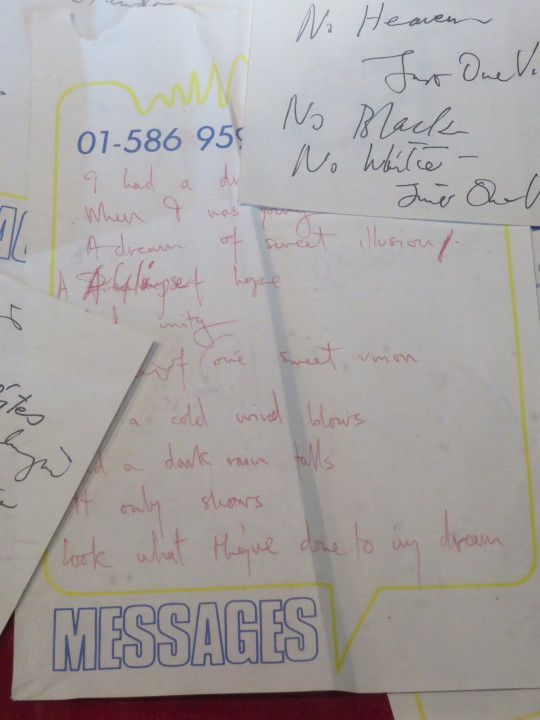 No Heaven
Just One V
No Black
No White -
Just One V
01-586 959
I had a dr
When I was young
A dream of sweet illusion
A glimpse of hope
unity
of one sweet union
a cold wind blows
a dark rain falls
It only shows
look what they've done to my dream
MESSAGES